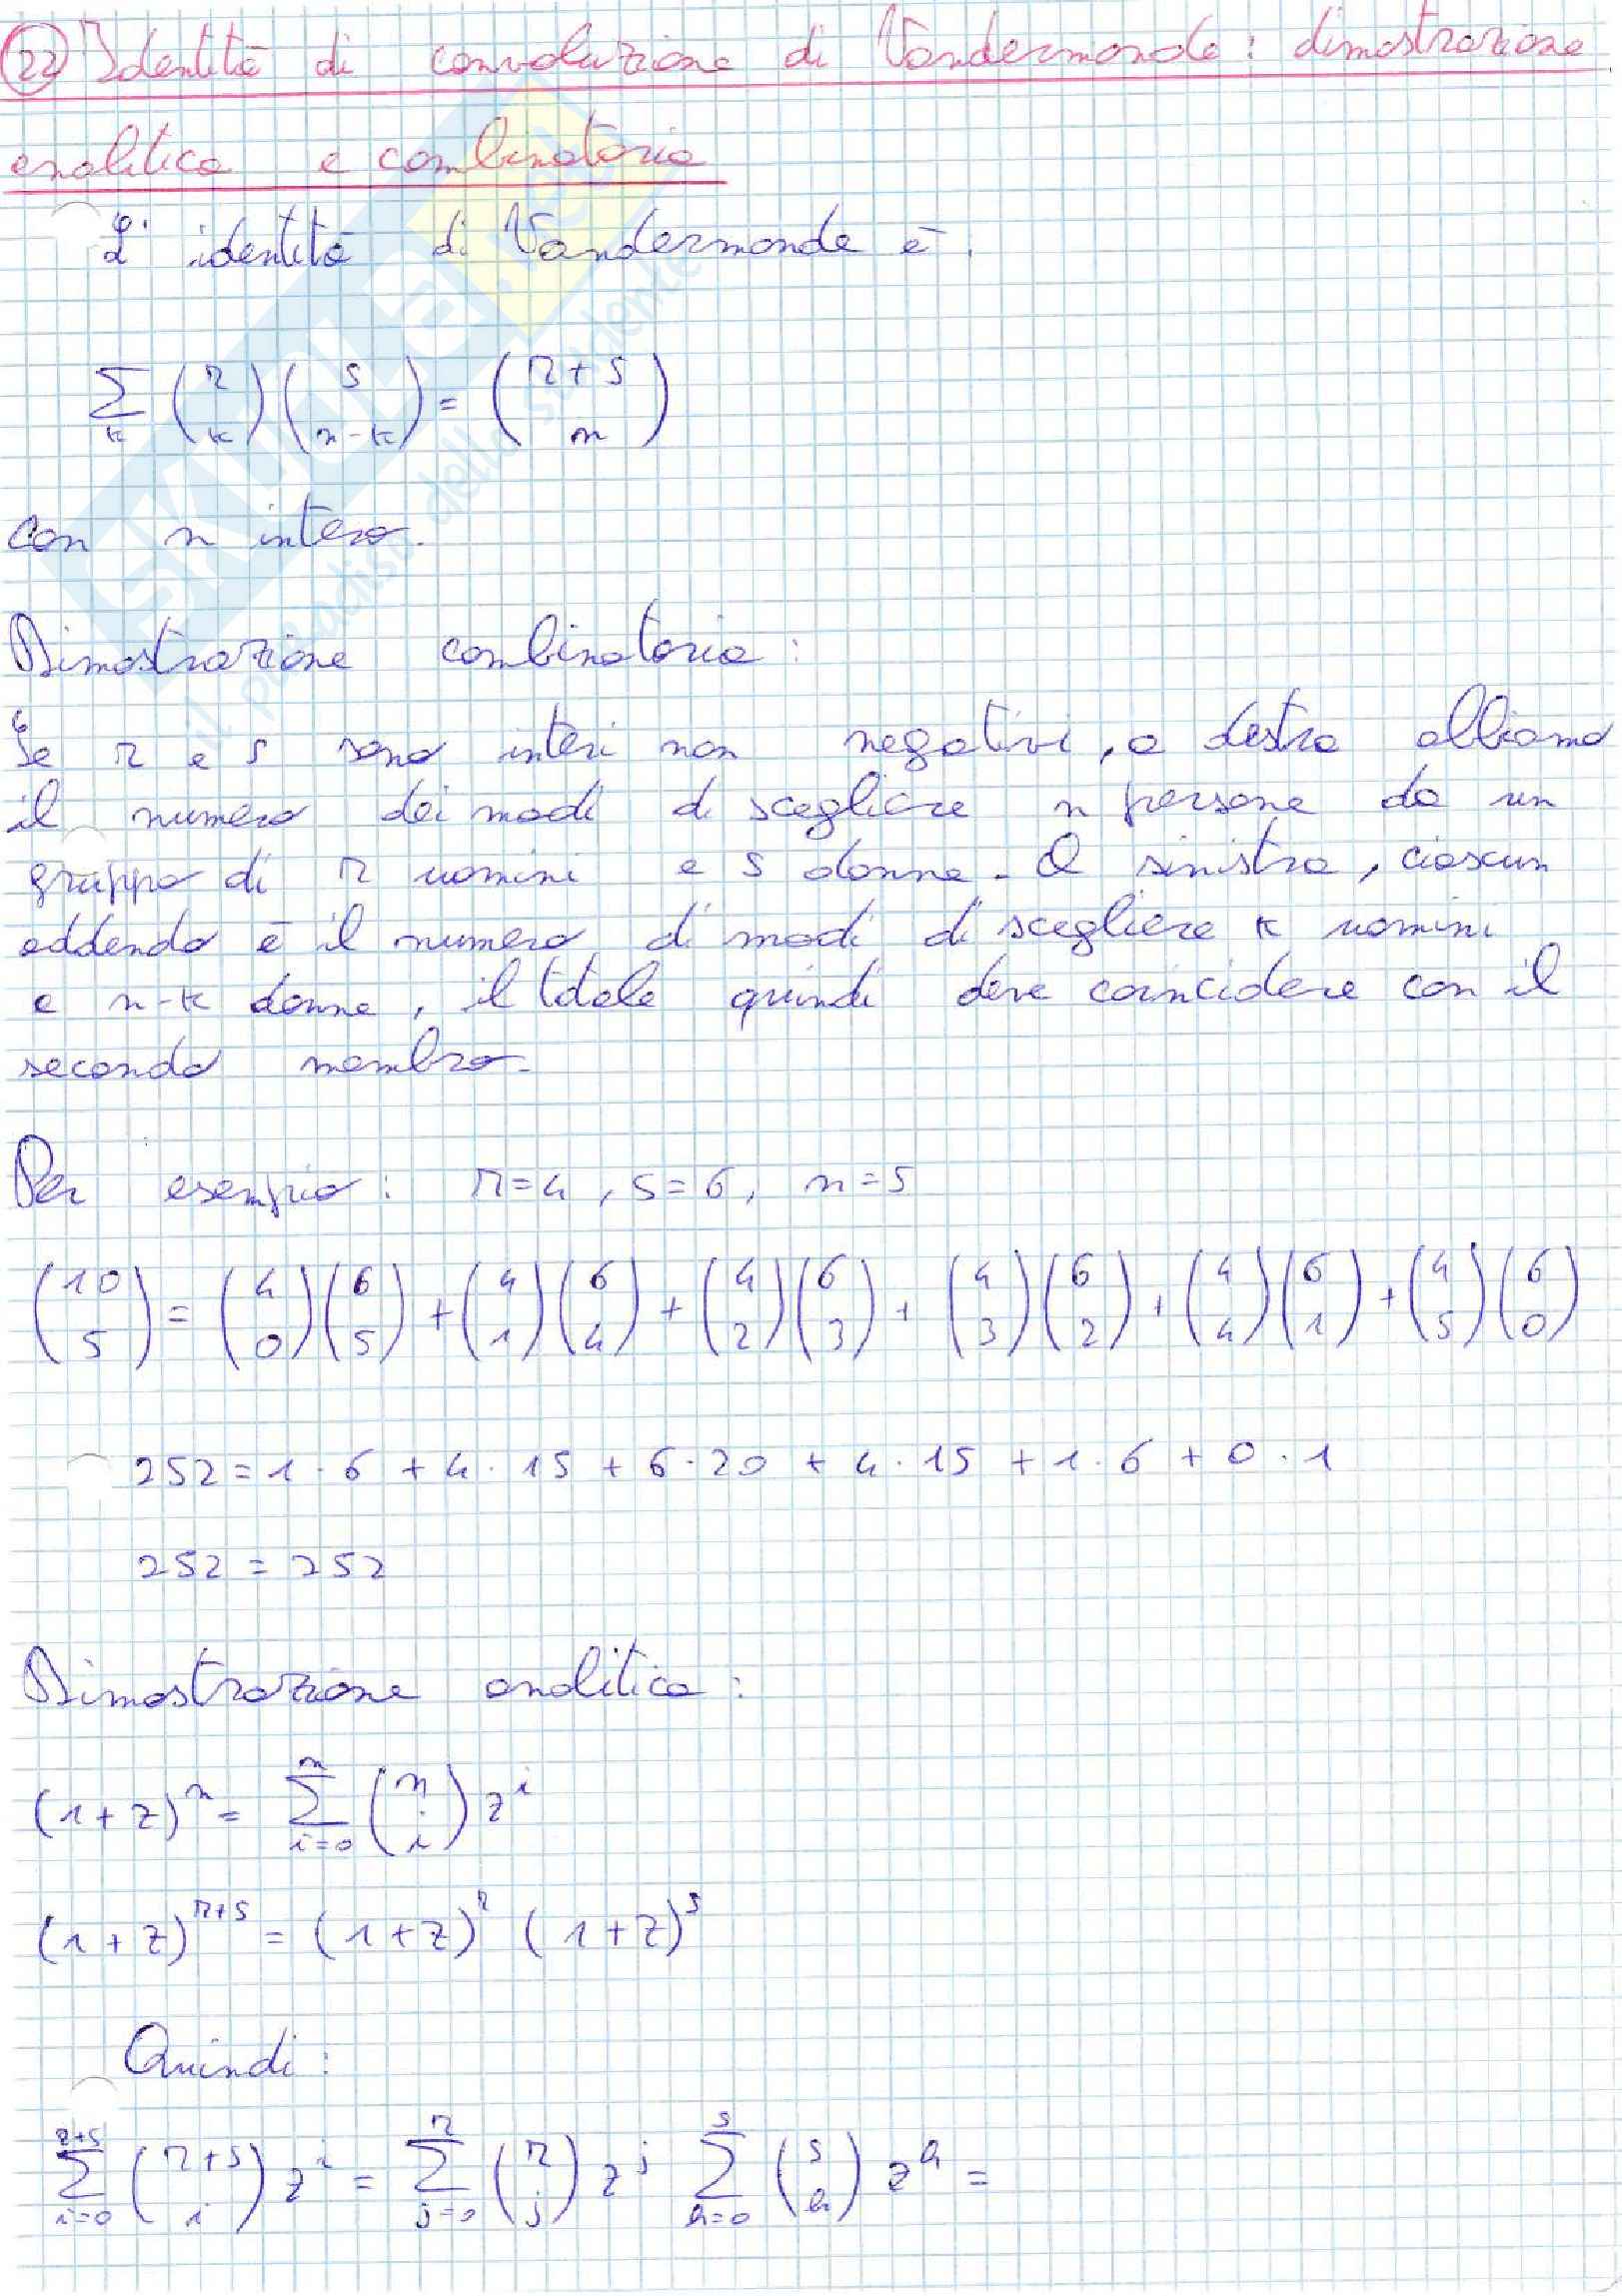 22 Identità di convoluzione di Vandermonde: dimostrazione
analitica e combinatoria
L'identità di Vandermonde è:
∑_k (r k)(s n-k) = (r+s n)
con n intero.
Dimostrazione combinatoria:
Se r e s sono interi non negativi, a destra abbiamo
il numero dei modi di scegliere n persone da un
gruppo di r uomini e s donne. A sinistra, ciascun
addendo è il numero di modi di scegliere k uomini
e n-k donne, il totale quindi deve coincidere con il
secondo membro.
Per esempio: r=4, s=6, n=5
(10 5) = (4 0)(6 5) + (4 1)(6 4) + (4 2)(6 3) + (4 3)(6 2) + (4 4)(6 1) + (4 5)(6 0)
252 = 1·6 + 4·15 + 6·20 + 4·15 + 1·6 + 0·1
252 = 252
Dimostrazione analitica:
(1+z)^n = ∑_{i=0}^{n} (n i) z^i
(1+z)^{r+s} = (1+z)^r (1+z)^s
Quindi:
∑_{i=0}^{r+s} (r+s i) z^i = ∑_{j=0}^{r} (r j) z^j ∑_{h=0}^{s} (s h) z^h =
SKUOLA.net
il paradiso dello studente